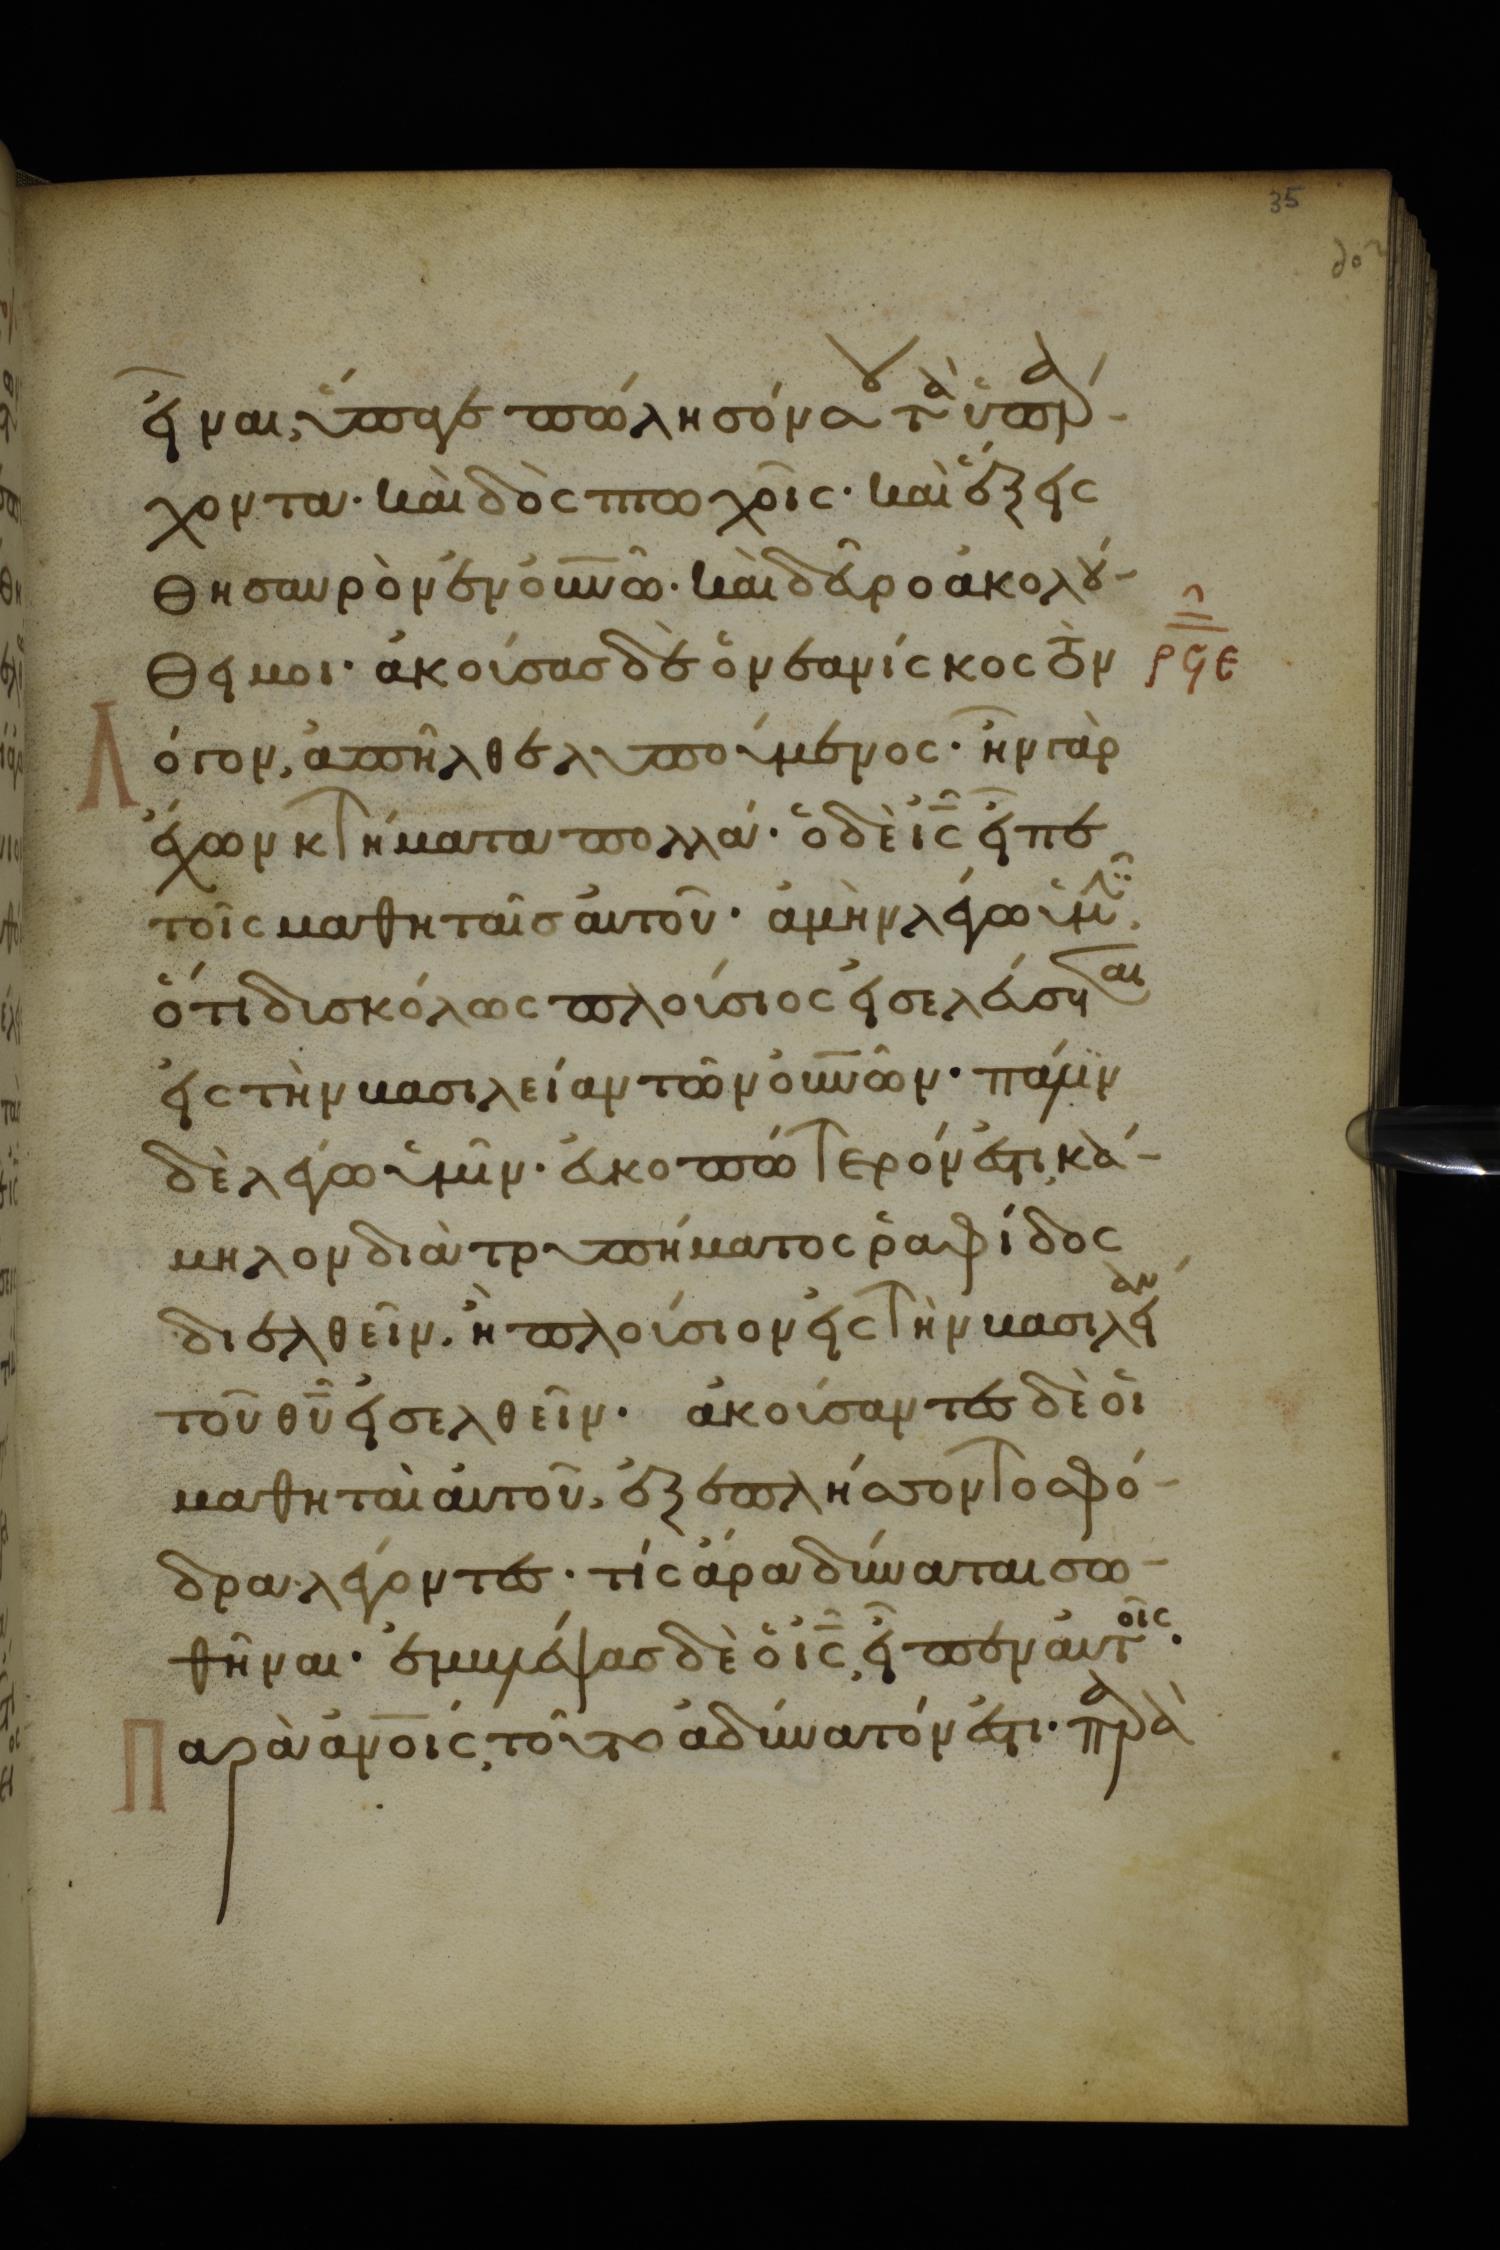 35
εἶναι, ὕπαγε πώλησόν σου τὰ ὑπάρ-
χοντα· καὶ δὸς πτωχοῖς· καὶ ἕξεις
θησαυρὸν ἐν οὐνῶ· καὶ δεῦρο ἀκολού-
θει μοι· ἀκούσας δὲ ὁ νεανίσκος τὸν
ρϟε
λόγον, ἀπῆλθε λυπούμενος· ἦν γὰρ
ἔχων κτήματα πολλά· ὁ δὲ ις εἶπε
τοῖς μαθηταῖς αὐτοῦ· ἀμὴν λέγω ὑμῖν.
ὅτι δυσκόλως πλούσιος εἰσελεύσεται
εἰς τὴν βασιλείαν τῶν οὐνῶν· πάλιν
δὲ λέγω ὑμῖν· εὐκοπώτερόν ἐστι, κά-
μηλον διὰ τρυπήματος ῥαφίδος
διελθεῖν. ἢ πλούσιον εἰς τὴν βασιλείαν
τοῦ θῦ εἰσελθεῖν· ἀκούσαντες δὲ οἱ
μαθηταὶ αὐτοῦ, ἐξεπλήσσοντο σφό-
δρα λέγοντες· τίς ἄρα δύναται σω-
θῆναι· ἐμβλέψας δὲ ὁ ις, εἶπεν αὐτοῖς·
Παρὰ ἀνοις, τοῦτο ἀδύνατόν ἐστι· παρὰ